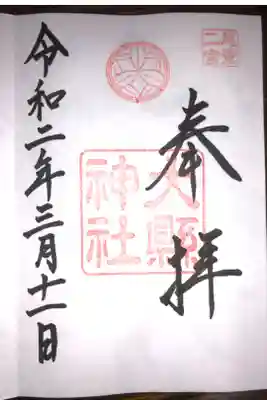 尾張
二宮
奉拝
大縣
神社
令和二年三月十一日